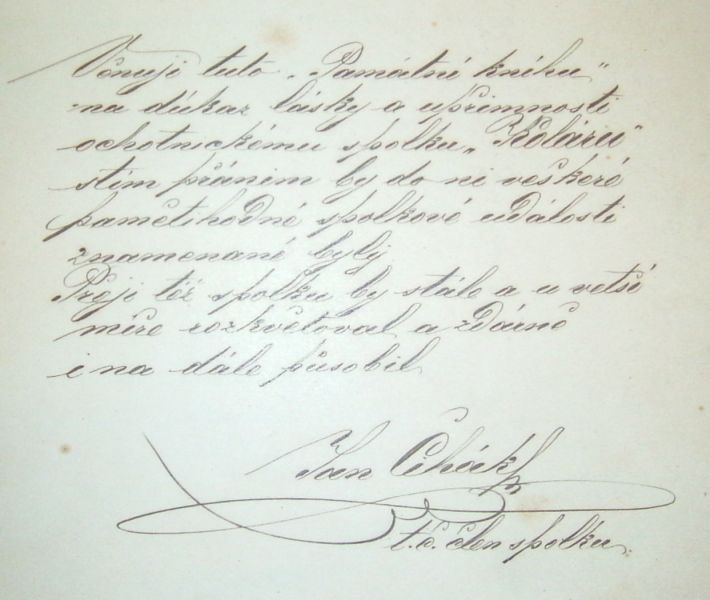 Věnuji tuto „Památní knihu“
na důkaz lásky a upřimnosti
ochotnickému spolku „Kolárů“
stím přáním by do ni veškeré
pamětihodné spolkové události
znamenané byly
Přeji též spolku by stále a u vetší
míře rozkvětoval a zdárně
i na dále působil
Jan Čihák
t.č. člen spolku.